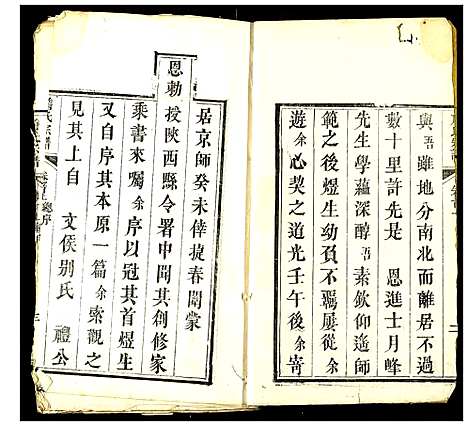 與吾雖地分南北而離居不過
數十里許先是　恩進士月峰
先生學蘊深醇吾素欽仰遥師
範之後煜生幼負不羈屢從余
遊余心契之道光壬午後余寄
居京師癸未倖捷春闈蒙
恩勅
授陝西縣令署中聞其創修家
乘書來囑余序以冠其首煜生
又自序其本原一篇余索觀之
見其上自　文侯別氏　禮公